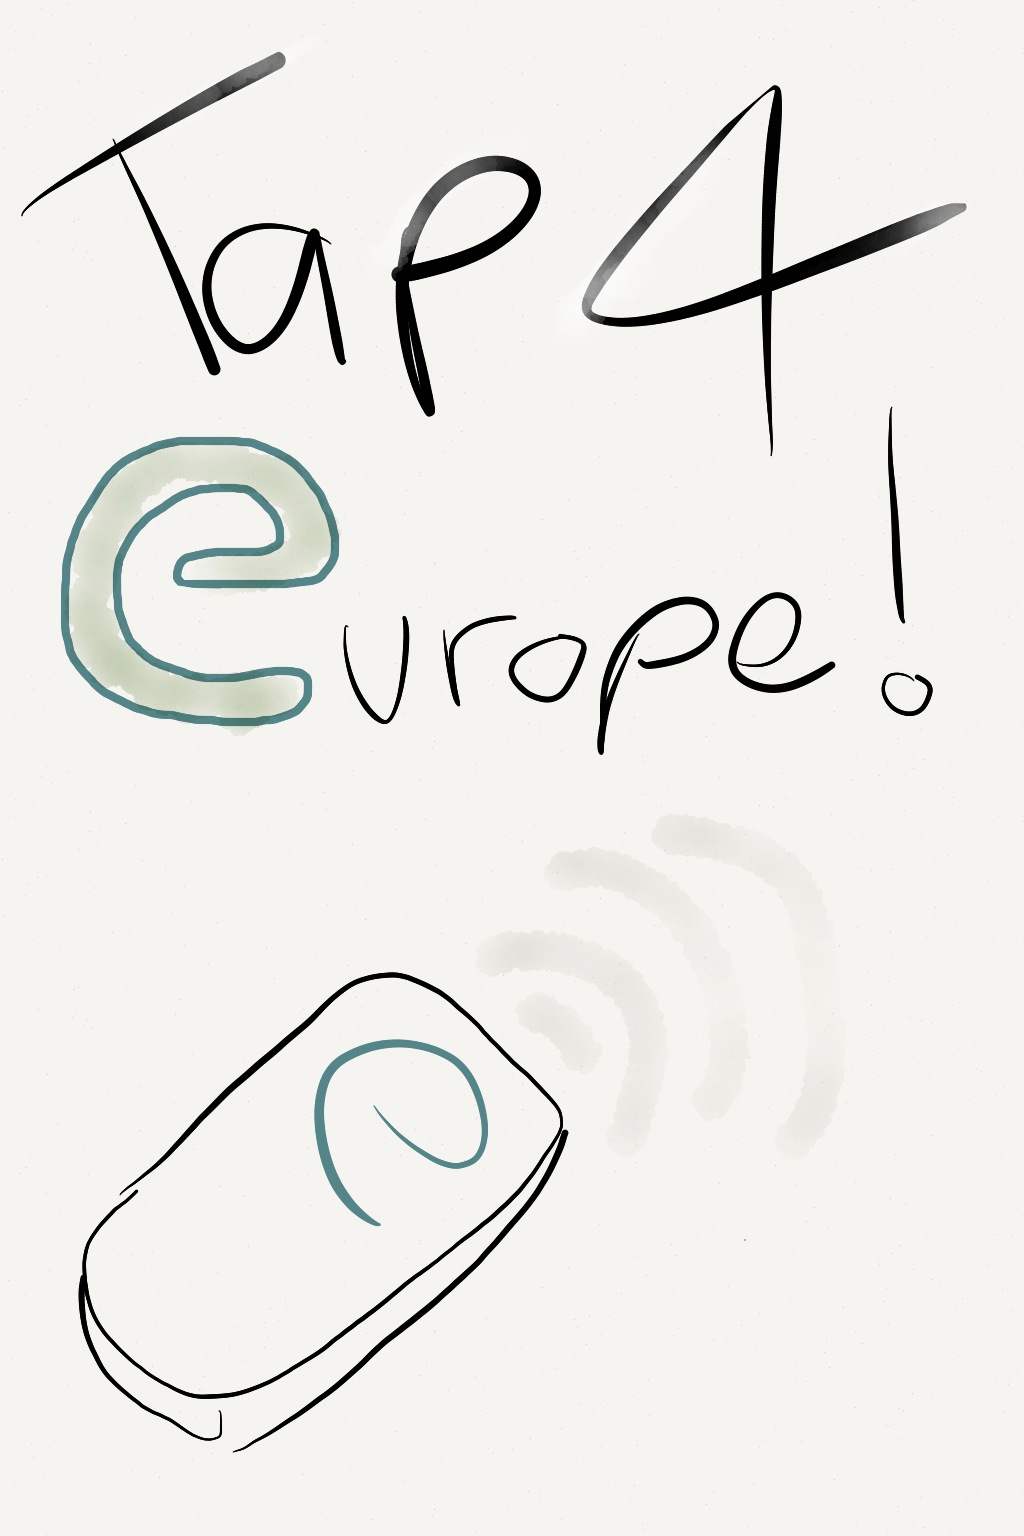 Tap 4
europe!
e